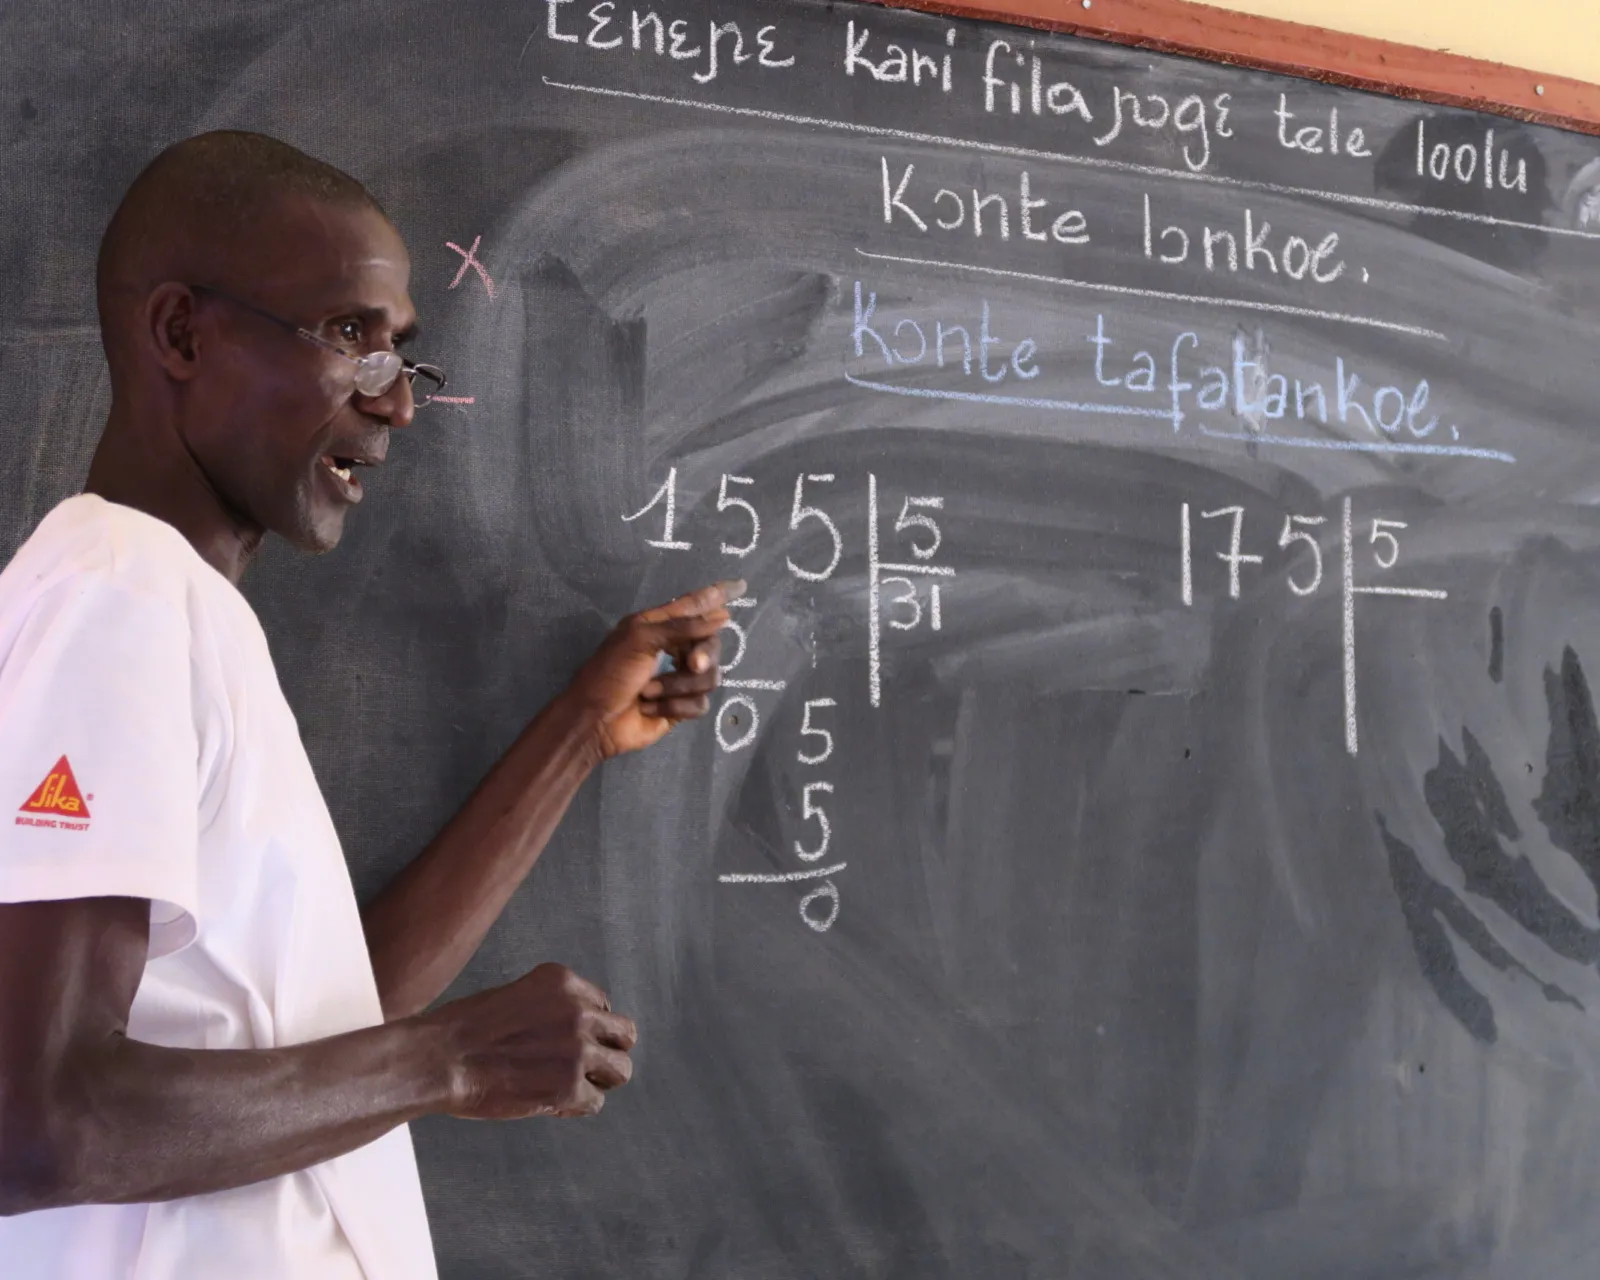 tɛnɛɲɛ kari fila ɲɔgɛ tele loolu
Kɔnte lɔnkoe.
Kɔnte tafatankoe.
155 5
31
5
0 5
5
0
175 5
x
–
Sika®
BUILDING TRUST